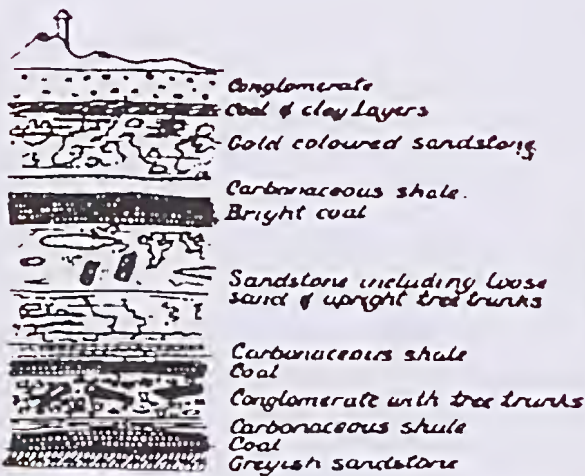 Conglomerate
Coal & clay Layers
Gold coloured sandstone
Carbonaceous shale.
Bright coal
Sandstone including loose
sand & upright tree trunks
Carbonaceous shale
Coal
Conglomerate with tree trunks
Carbonaceous shale
Coal
Greyish sandstone